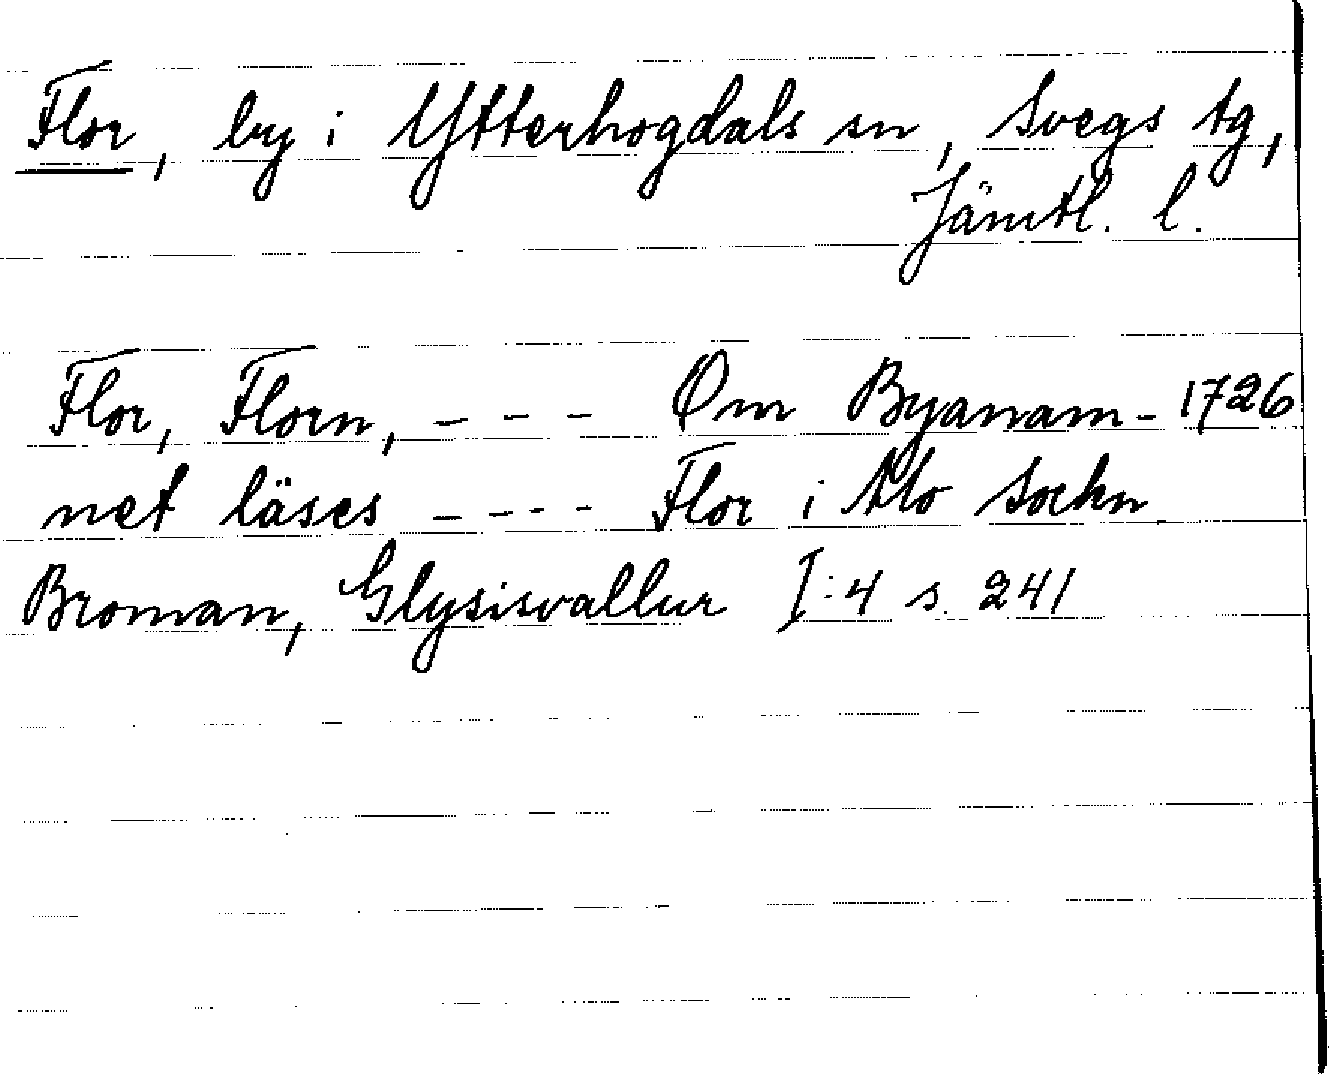 Flor, by i Ytterhogdals sn, Svegs tg,
Jämtl. l.
Flor, Florn, - - - Om Byanam- 1726
net läses - - - - Flor i Mo Sockn
Broman, Glysisvallur I:4 s. 241